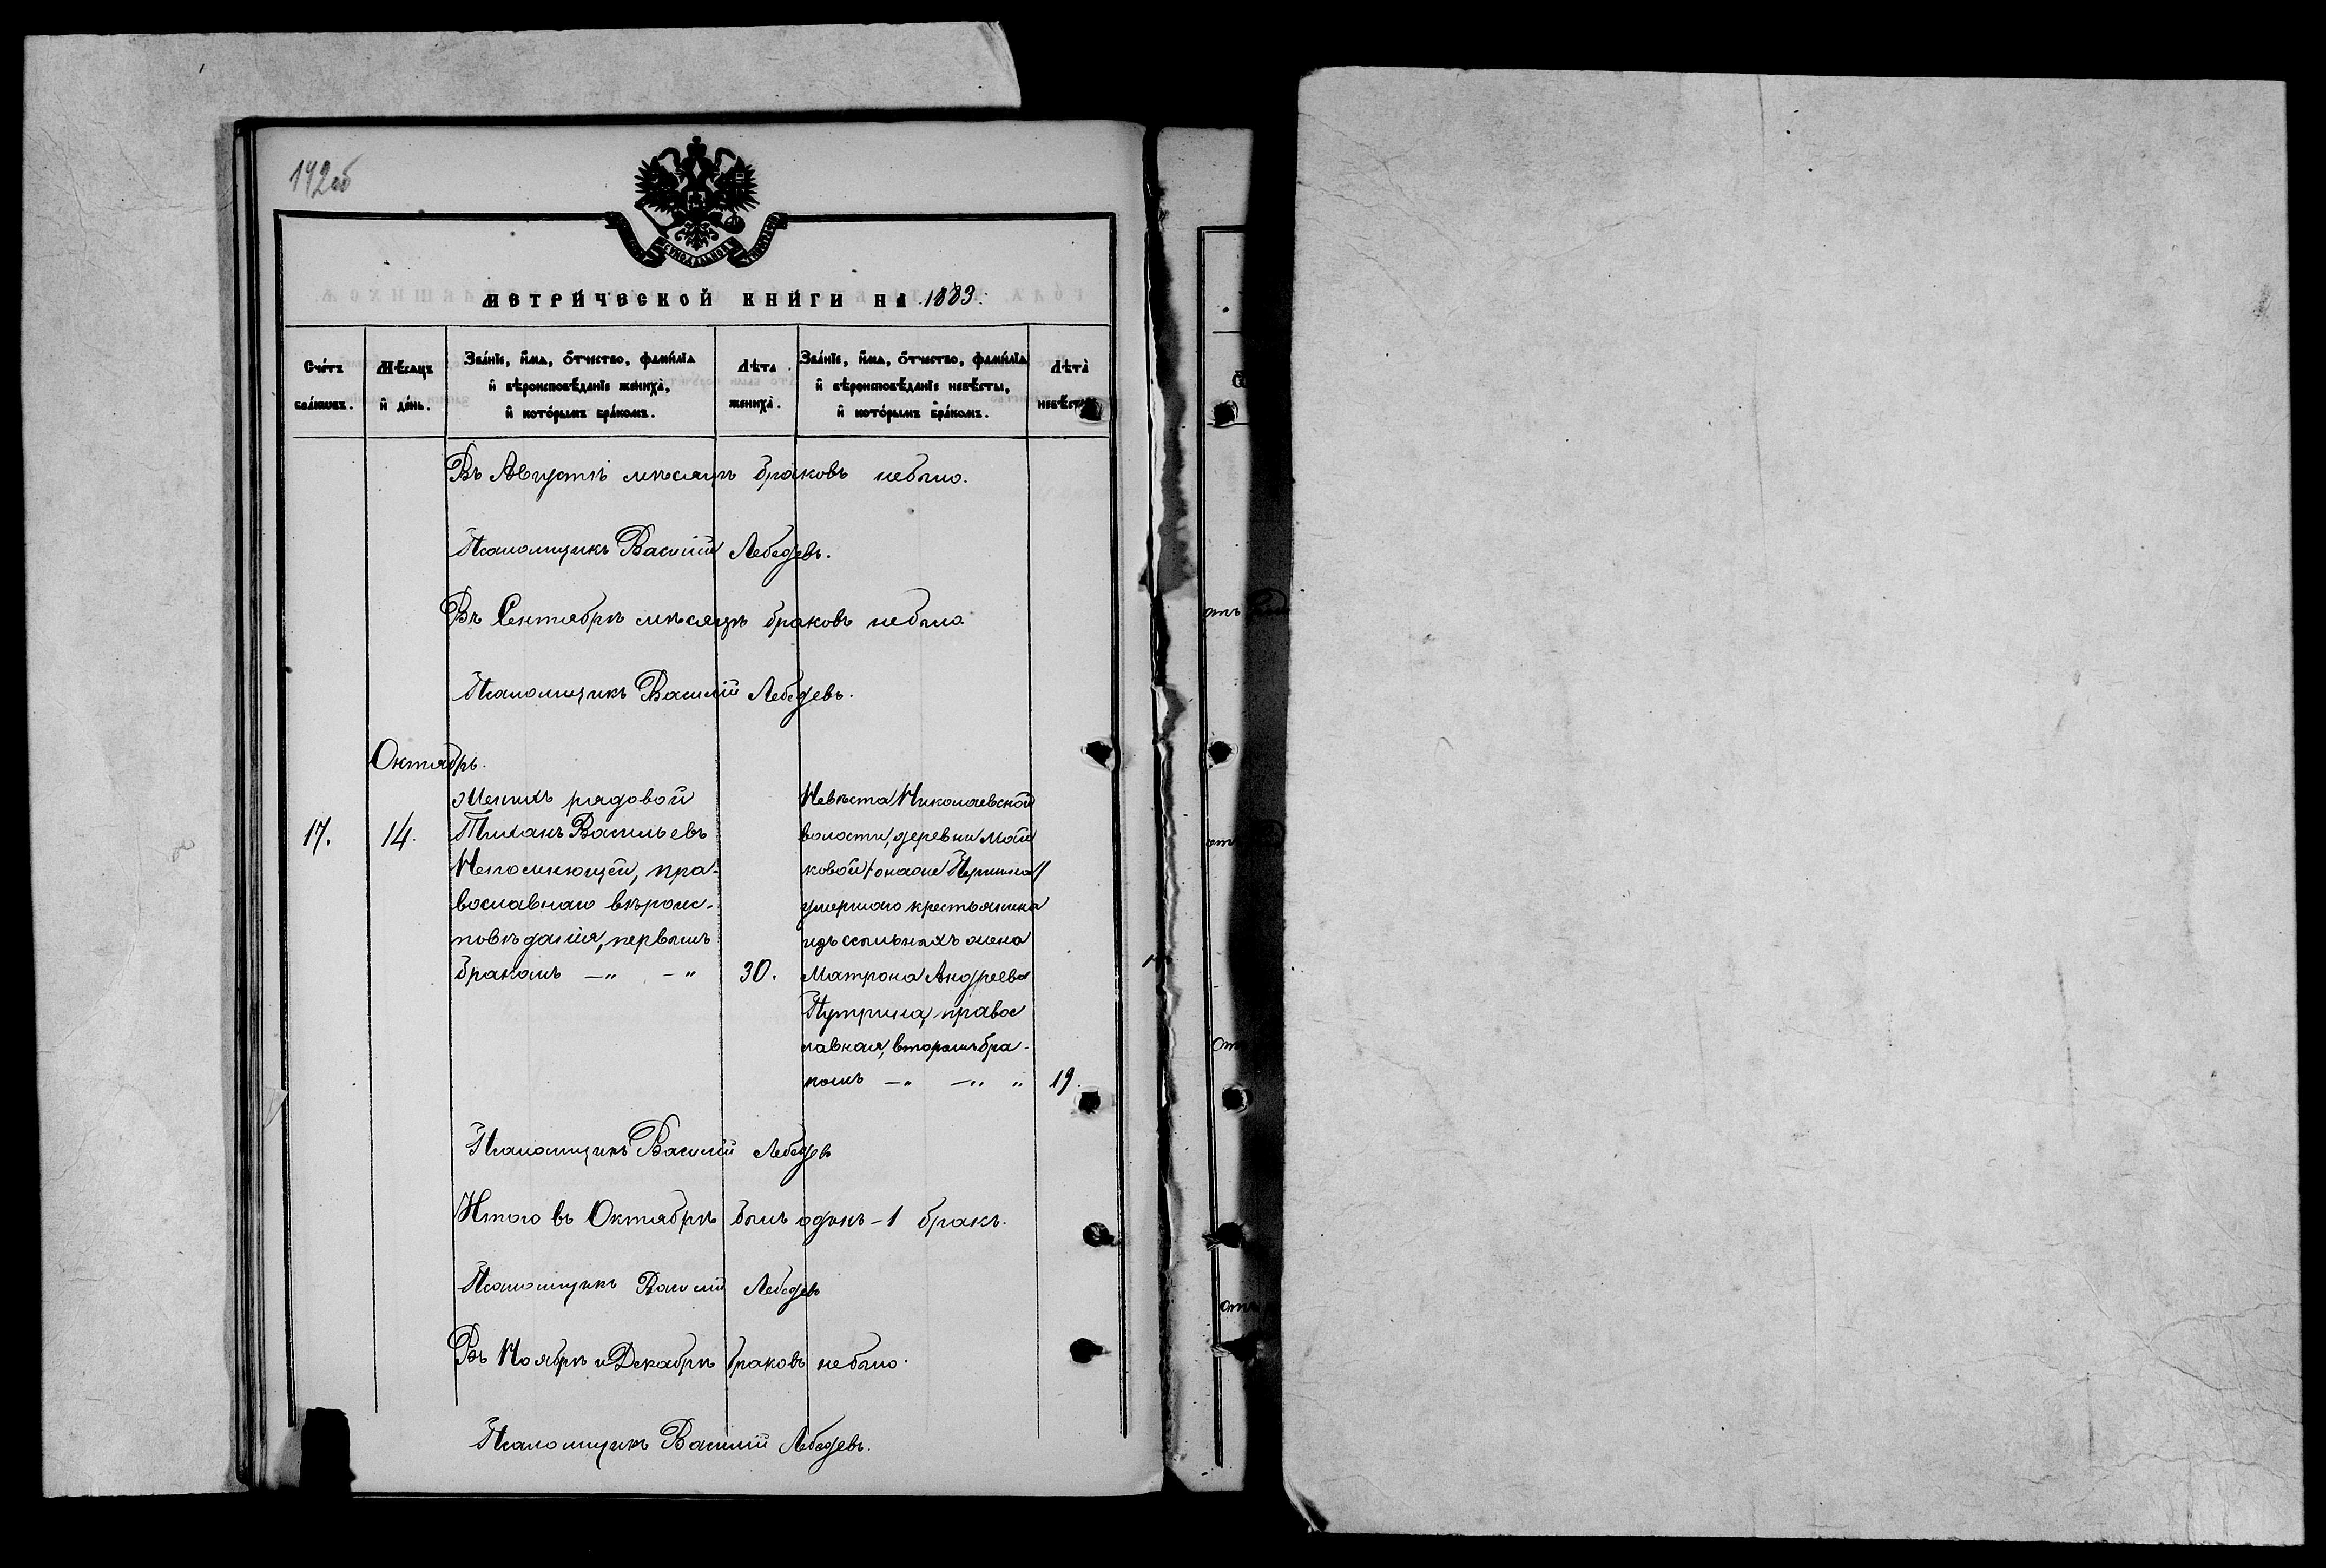 142об
СѴНОДАЛЬНОЙ
МЕТРИЧЕСКОЙ КНИГИ НА 1883.
Счётъ браковъ.
Мѣсяцъ и день.
Званіе, имя, отчество, фамилія и вѣроисповѣданіе жениха, и которымъ бракомъ.
Лѣта жениха.
Званіе, имя, отчество, фамилія и вѣроисповѣданіе невѣсты, и которымъ бракомъ.
Лѣта невѣсты.
Въ Августѣ мѣсяцѣ браковъ небыло.
Псаломщикъ Василій Лебедевъ.
Въ Сентябрѣ мѣсяцѣ браковъ небыло.
Псаломщикъ Василій Лебедевъ.
Октябрь.
17. 14.
Женихъ рядовой
Тиханъ Васильевъ
Непомнющей, пра-
вославнаго вѣроис-
повѣданія, первымъ
бракомъ —〃 —〃 30.
Невѣста Николаевской
волости, деревни Май
ковой /онаже
умершаго крестьянина
изъ ссыльныхъ жена
Матрона Андреева
Путрина, правос
лавная, вторымъ бра-
комъ —〃 —〃 〃 19.
Псаломщикъ Василій Лебедевъ
Итого въ Октябрѣ былъ одинъ - 1 бракъ.
Псаломщикъ Василій Лебедевъ
Въ Ноябрѣ и Декабрѣ браковъ небыло.
Псаломщикъ Василій Лебедевъ.